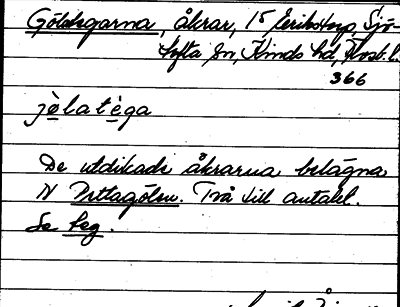 Göltegarna, åkrar, 15 Erikstorp, Sjö-
tofta sn, Kinds hd, Älvsb. l.
366
jèlatèga
De utdikade åkrarna belägna
N Prttagölen. Två till antalet.
Se teg.